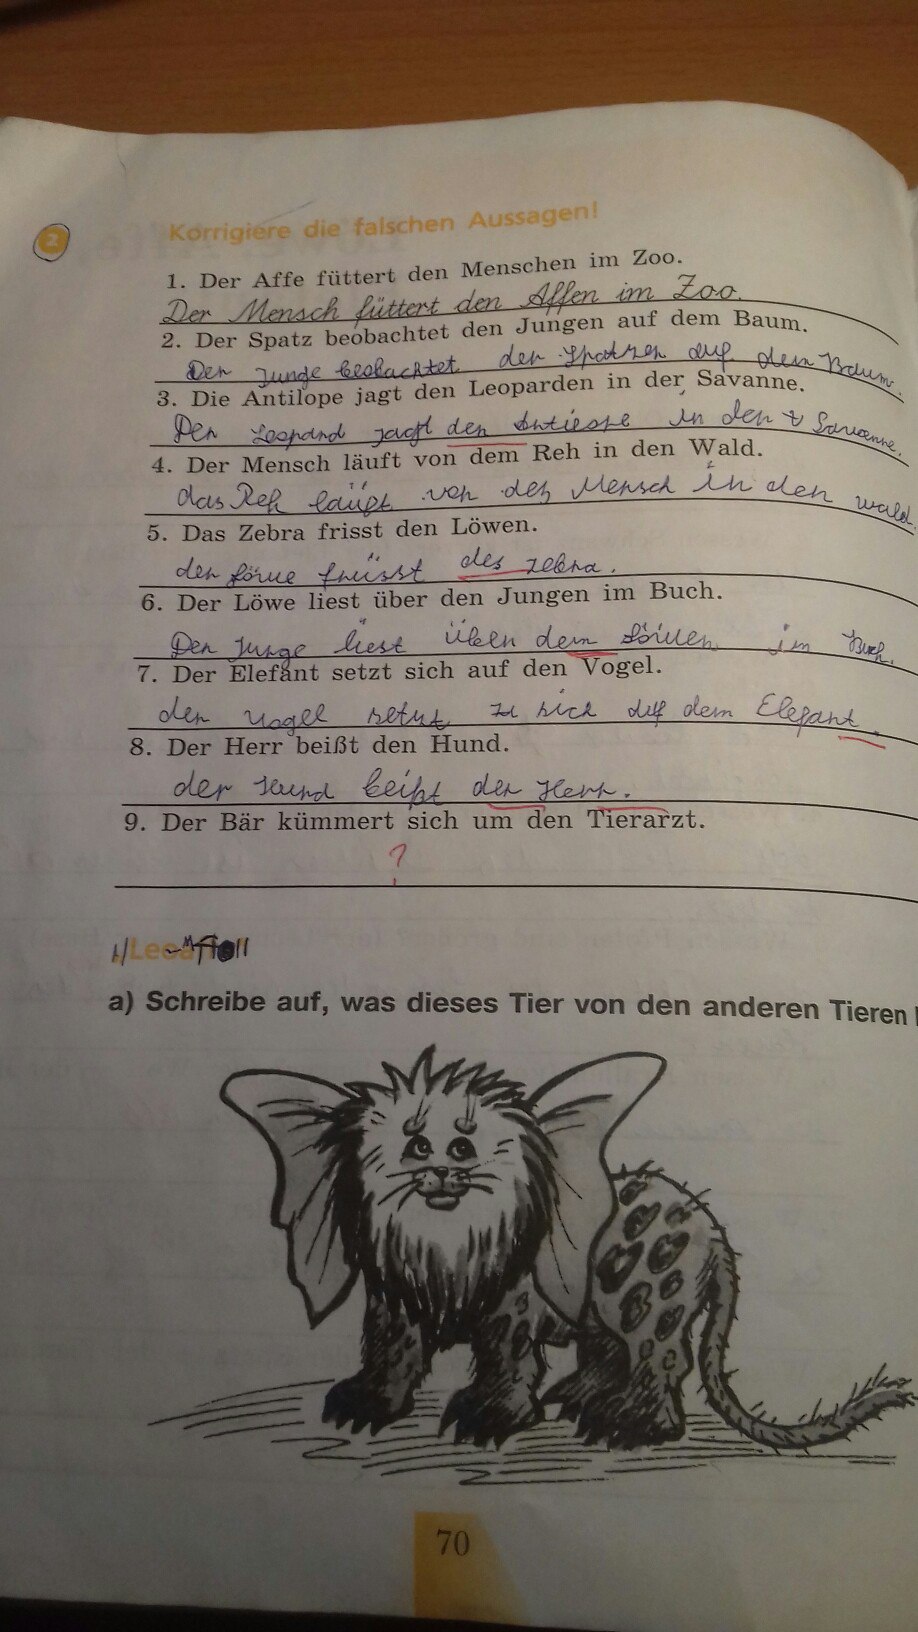 2 Korrigiere die falschen Aussagen!
1. Der Affe füttert den Menschen im Zoo.
Der Mensch füttert den Affen im Zoo.
2. Der Spatz beobachtet den Jungen auf dem Baum.
Der Junge beobachtet den Spatzen auf dem Baum.
3. Die Antilope jagt den Leoparden in der Savanne.
Der Leopard jagt den in den Savanne.
4. Der Mensch läuft von dem Reh in den Wald.
das Reh läuft von Mensch in den Wald.
5. Das Zebra frisst den Löwen.
der Löwe des Zebra.
6. Der Löwe liest über den Jungen im Buch.
Der Junge liest über dem Löwen im Buch.
7. Der Elefant setzt sich auf den Vogel.
der Vogel setzt sich auf dem Elefant
8. Der Herr beißt den Hund.
der Hund beißt der Herr.
9. Der Bär kümmert sich um den Tierarzt.
?
a) Schreibe auf, was dieses Tier von den anderen Tieren
70